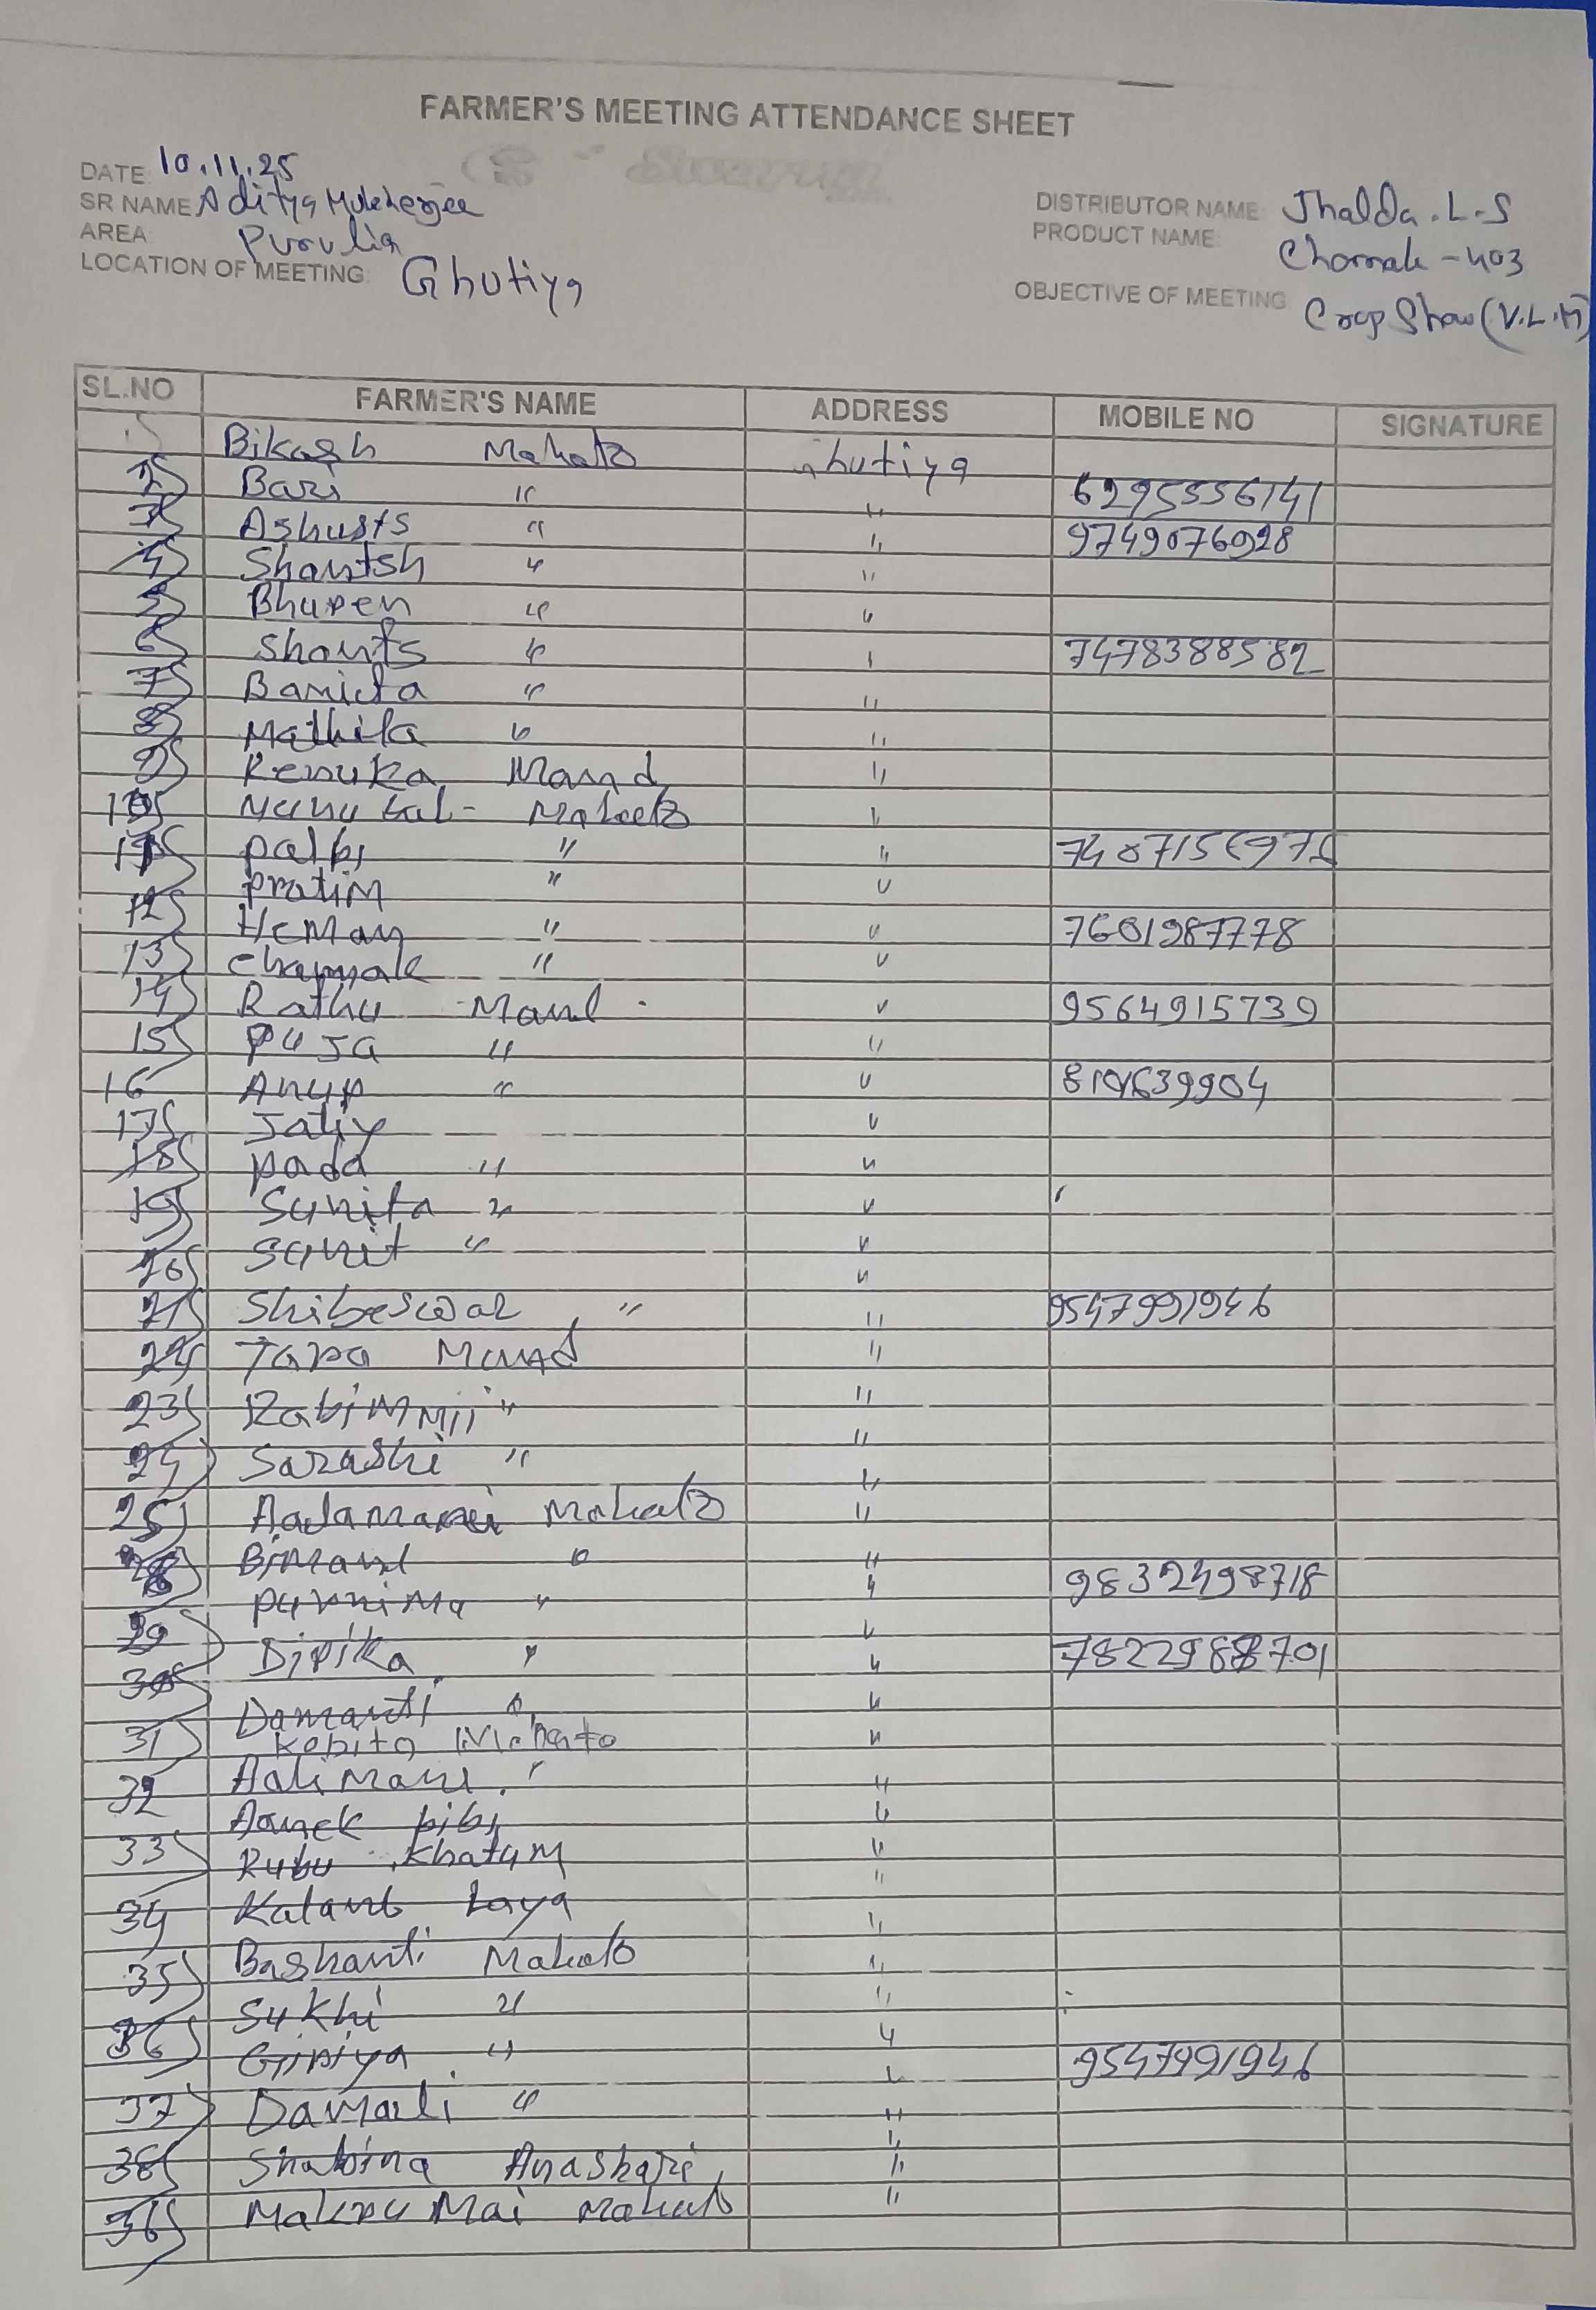 FARMER'S MEETING ATTENDANCE SHEET
DATE: 10.11.25
SR NAME Aditya Mukherjee
DISTRIBUTOR NAME: Jhalda.L.S
AREA: Purulia
PRODUCT NAME: -403
LOCATION OF MEETING: Ghutiya
OBJECTIVE OF MEETING: Crop Show (V.L.M)
SL.NO FARMER'S NAME ADDRESS MOBILE NO SIGNATURE
1) Bikash Mahato Ghutiya
2) Bari " " 6295556141
3) Ashusts " " 9749076928
4) Shantsh " "
5) Bhupen " "
6) Shants " " 7478388582
7) Banita " "
8) Mathika " "
9) Renuka Mand "
10) Nunu Lal - Mahato "
11) palbi " "
pratim " "
12) Heman " " 7601987778
13) " "
14) Rathu Mand " 9564915739
15) PUJA " "
16 Anup " "
17) Jatiy "
18) pada " "
19) Sunita " "
20) Sanit " "
21) Shibeswar " " 9547991946
22) Tapa Mand "
23) " "
24) Sarashi " "
25) Mahato "
Bimand " "
purnima " " 9832498718
29 Dipika " "
30) Damanti " "
31) Kobita Mahato "
32 Halimani " "
bibi "
33) Rubu Khatum "
34 Kalant Laya "
35) Bashanti Mahato "
36) Sukhi " "
Giriya " "
37) Damali " "
38) Shabina Anashari "
Mai Mahato "